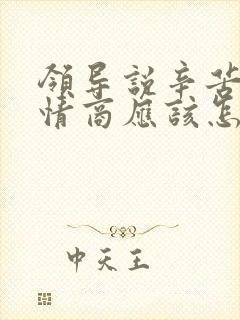 領导説辛苦
情商應該怎
中天王